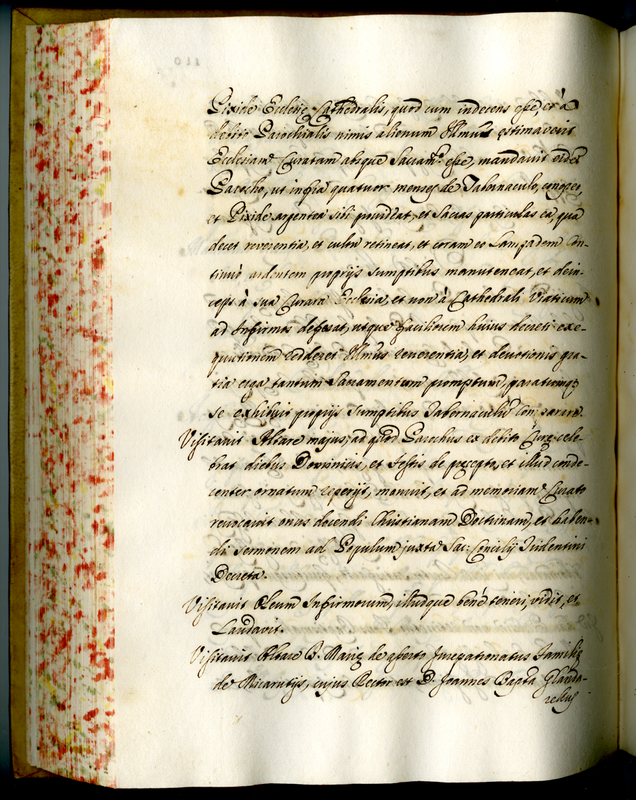 Pixide Ecclesię Cathedralis, quod cum indecens esse, et à
debito Parochialis nimis alienum Illmus existimaverit
Ecclesiam Curatam absque Sacram.to esse, mandavit eidem
Parocho, ut infra quatuor menses de Tabernaculo, conopeo,
et Pixide argentea sibi provideat, et Sacras particulas ea, qua
decet reverentia, et cultu retineat, et coram eo Lampadem con-
tinuò ardentem proprijs sumptibus manuteneat, et dein-
ceps à sua Curata Ecclesia, et non à Cathedrali Viaticum
ad Infirmos deferat, utque faciliorem huius decreti exe-
quutionem redderet Illmus reverentia, et devotionis gra-
tia erga tantum Sacramentum promptum, paratumq3
se exhibuit proprijs sumptibus Tabernaculum
Visitavit Altare majus, ad quod Parochus ex debito Curę cele-
brat diebus Dominicis, et Festis de pręcepto, et illud conde-
center ornatum reperijt, monuit, et ad memoriam Curato
revocavit onus docendi Christianam Doctrinam, et haben-
di sermonem ad Populum juxta Sac. Concilij Tridentini
Decreta.
Visitavit Oleum Infirmorum, illudque benè teneri, vidit, et
Laudavit.
Visitavit Altare B. Marię de Jurepatronatus Familię
de cujus Rector est D. Joannes Bapta Glanda-
rellus